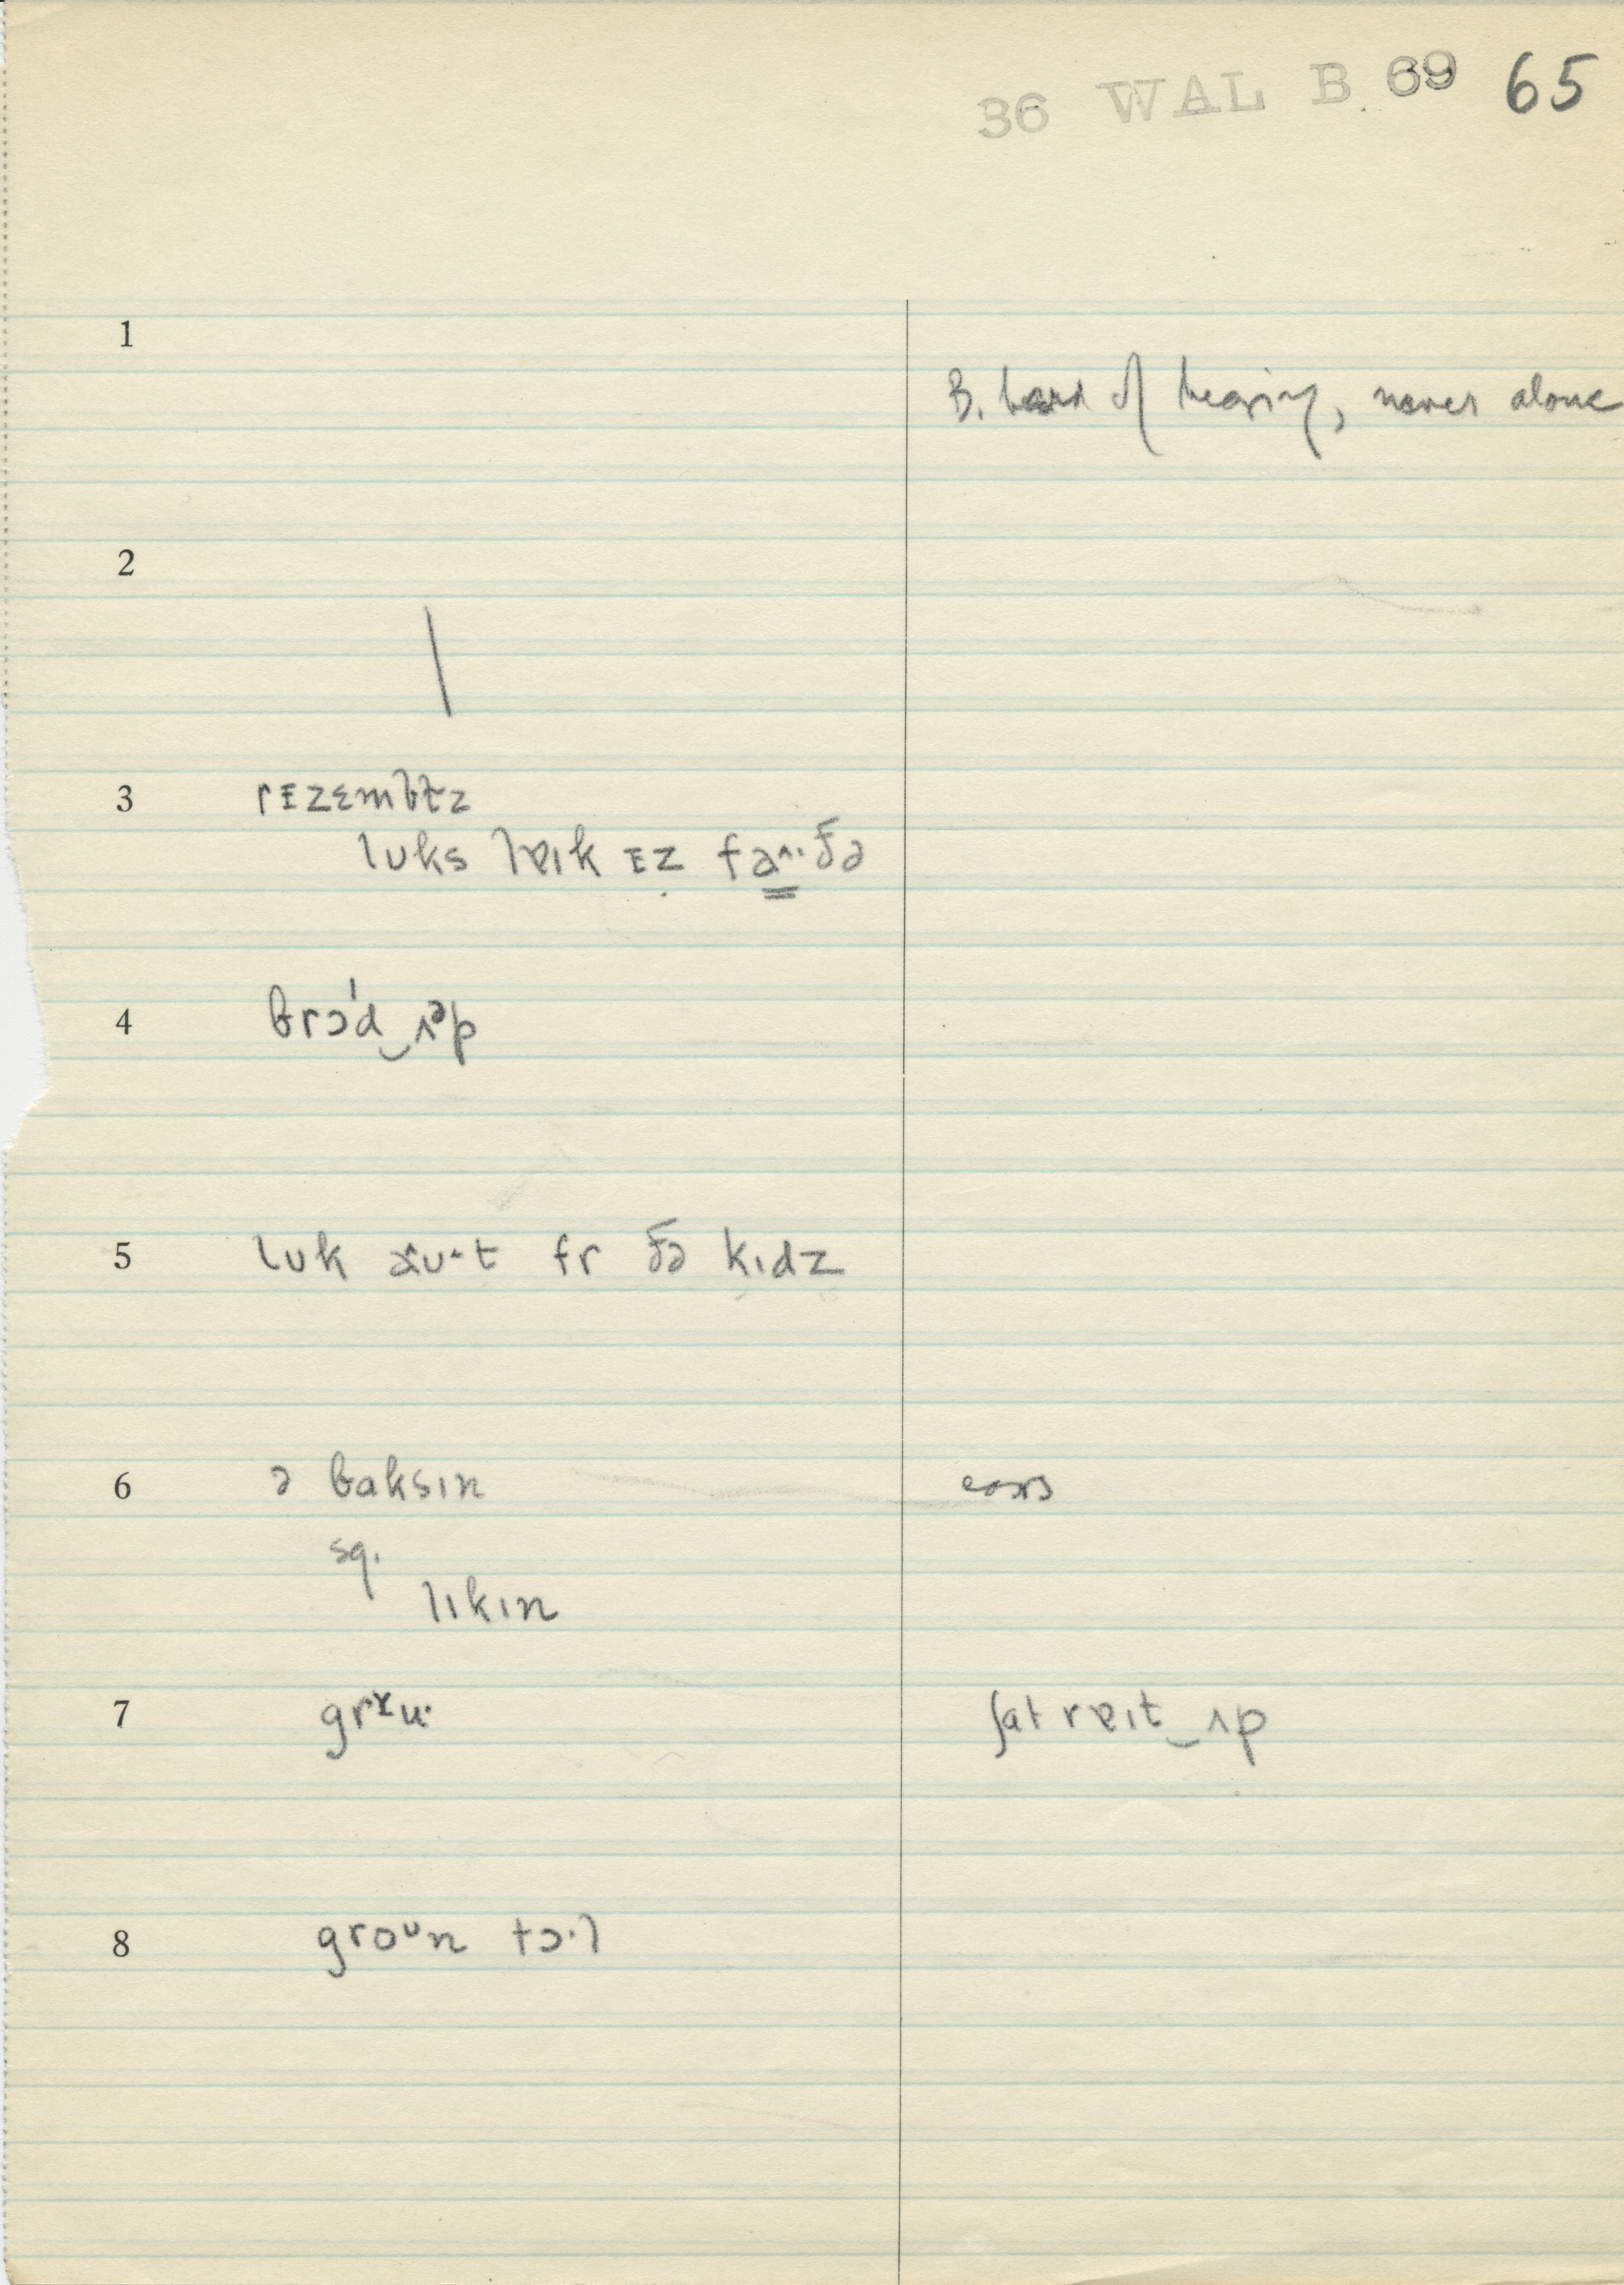 36 WAL B 69 65
1
B. hard of hearing, never alone
2
3 rᴇzɛmbɫz
luks lɐɪk ᴇz faˑðə
4 brɔ'd‿ʌᵊp
5 lʊk ʊˑt fr ðə kɪdz
6 ə baksɪn
sq.
lɪkɪn
7 grʉˑ ʃat rɐɪt‿ʌp
8 groᴜn tɔˑl